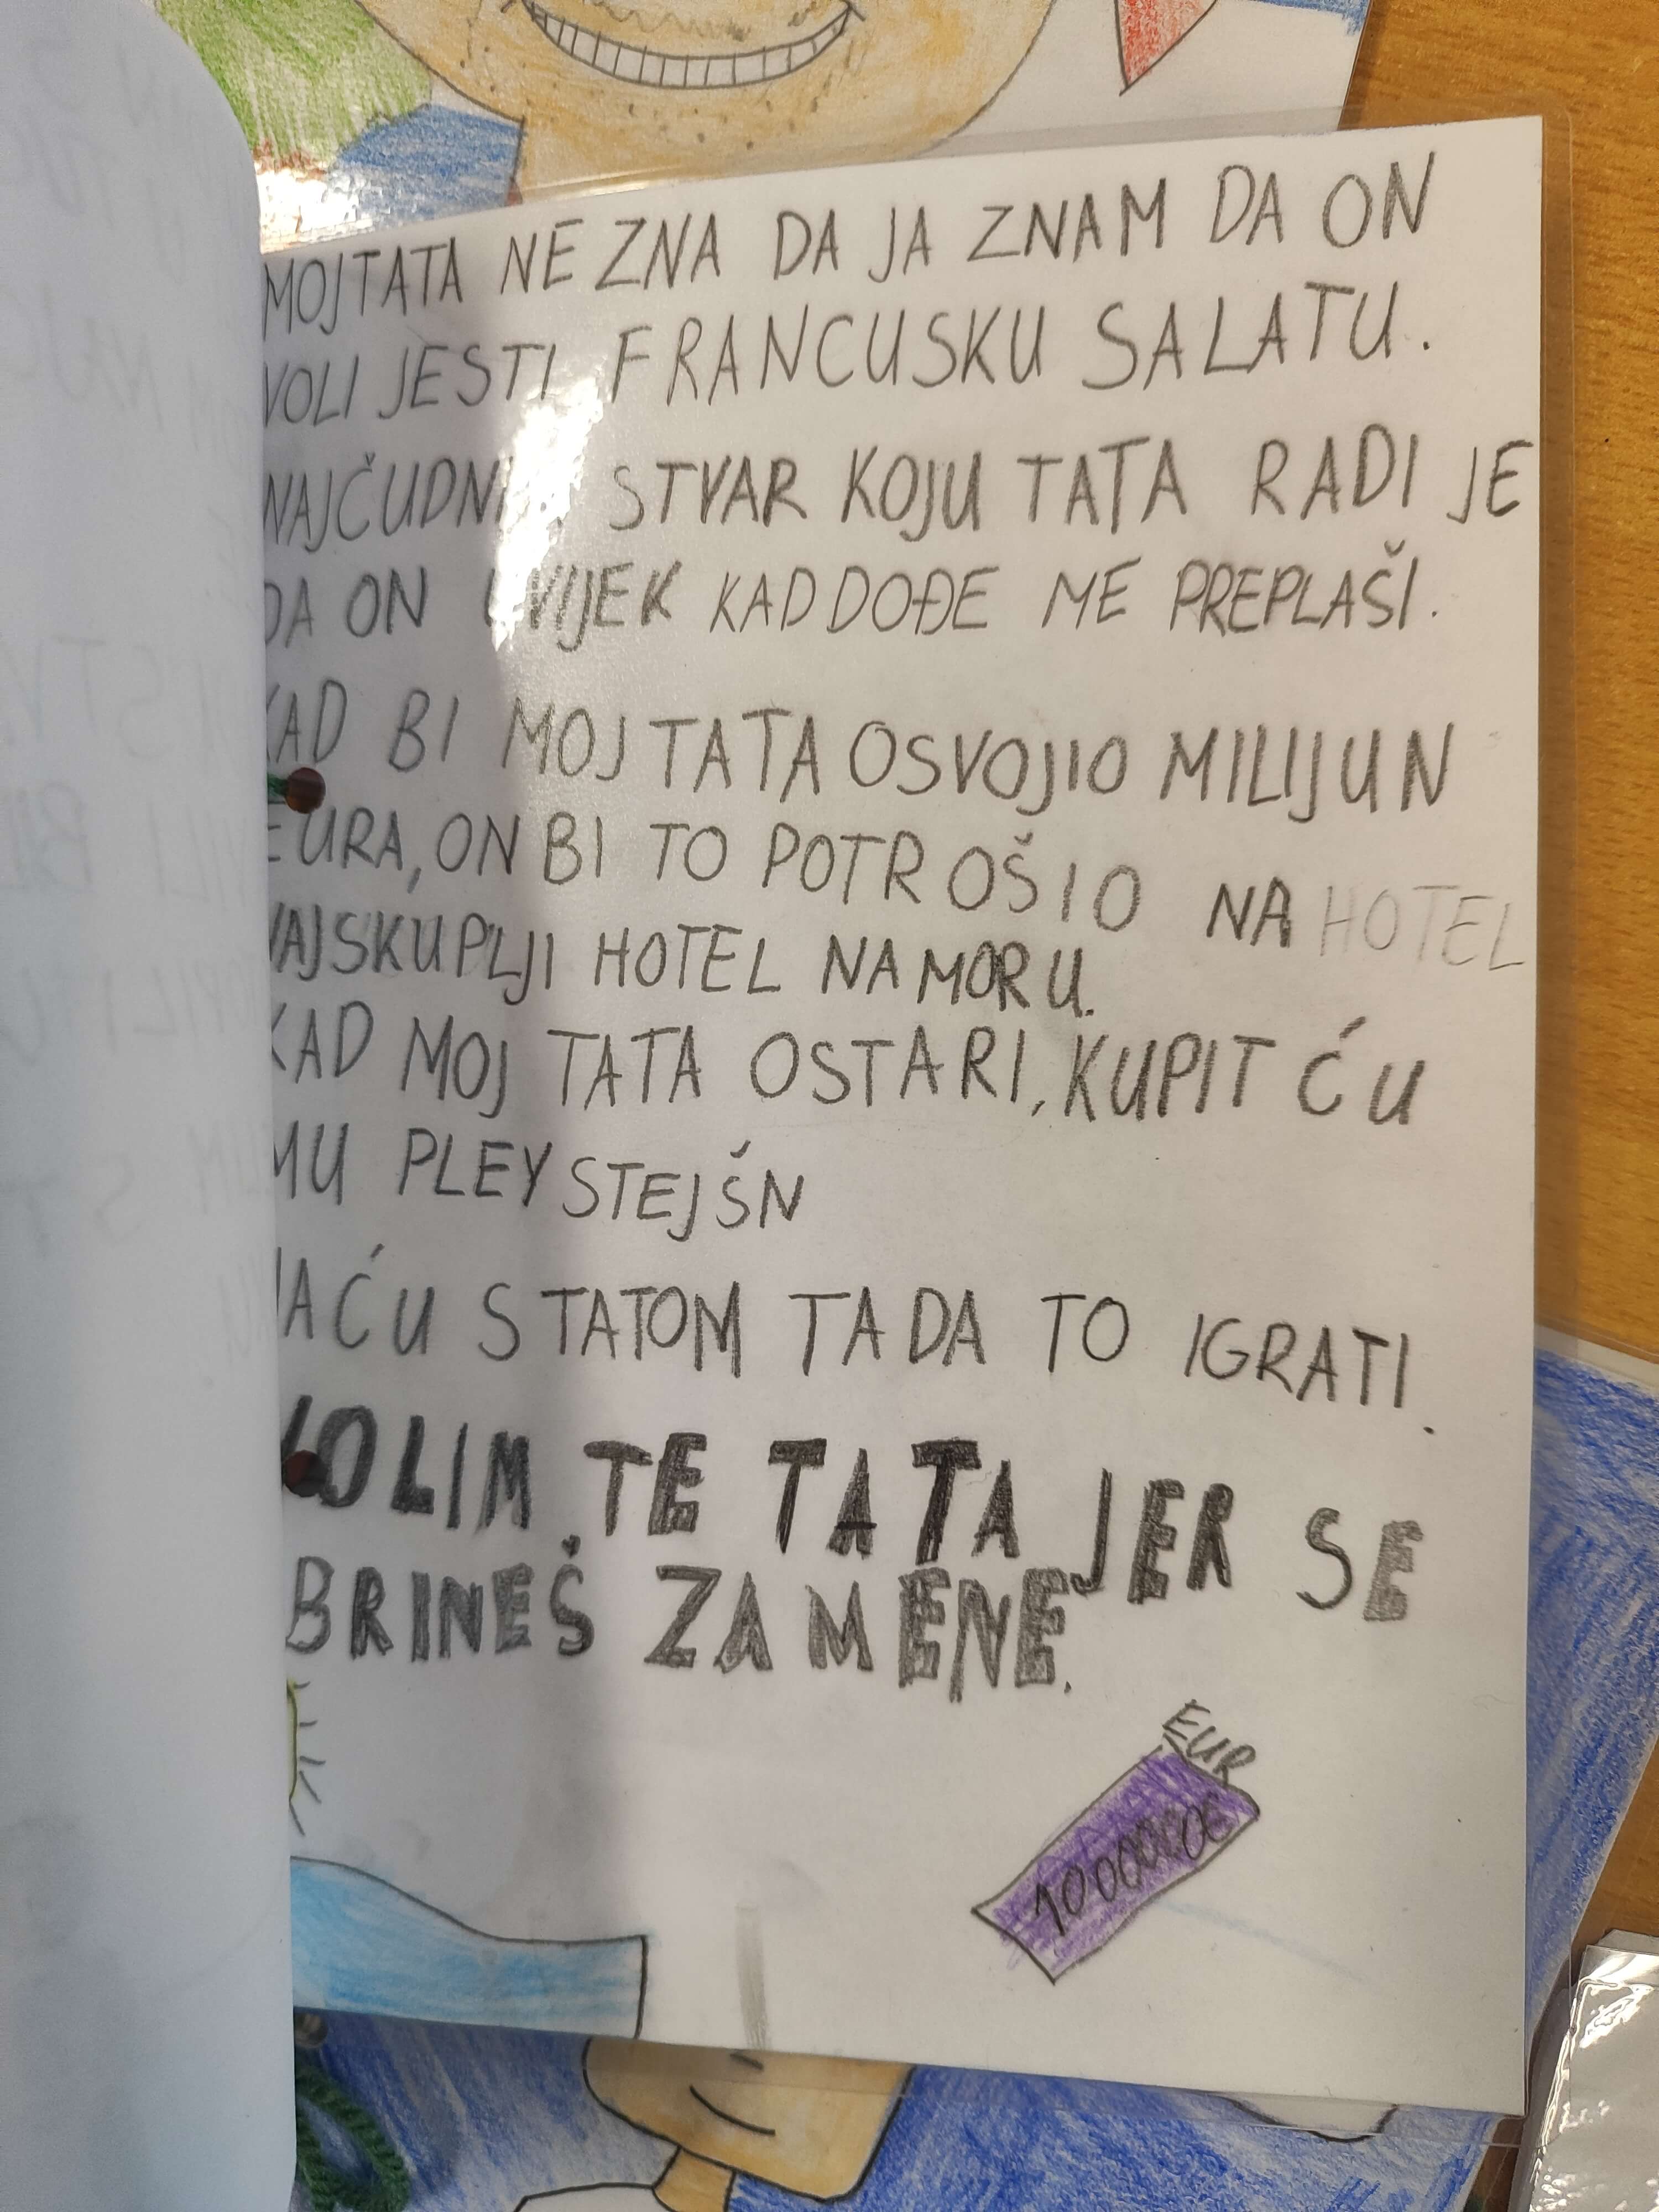 MOJ TATA NE ZNA DA JA ZNAM DA ON
VOLI JESTI FRANCUSKU SALATU.
STVAR KOJU TATA RADI JE
DA ON UVIJEK KAD DOĐE ME PREPLAŠI.
KAD BI MOJ TATA OSVOJIO MILIJUN
EURA, ON BI TO POTROŠIO NA HOTEL
NAJSKUPLJI HOTEL NA MORU.
KAD MOJ TATA OSTARI, KUPIT ĆU
MU PLEYSTEJŠN
JA ĆU S TATOM TADA TO IGRATI.
VOLIM TE TATA JER SE
BRINEŠ ZA MENE.
EUR